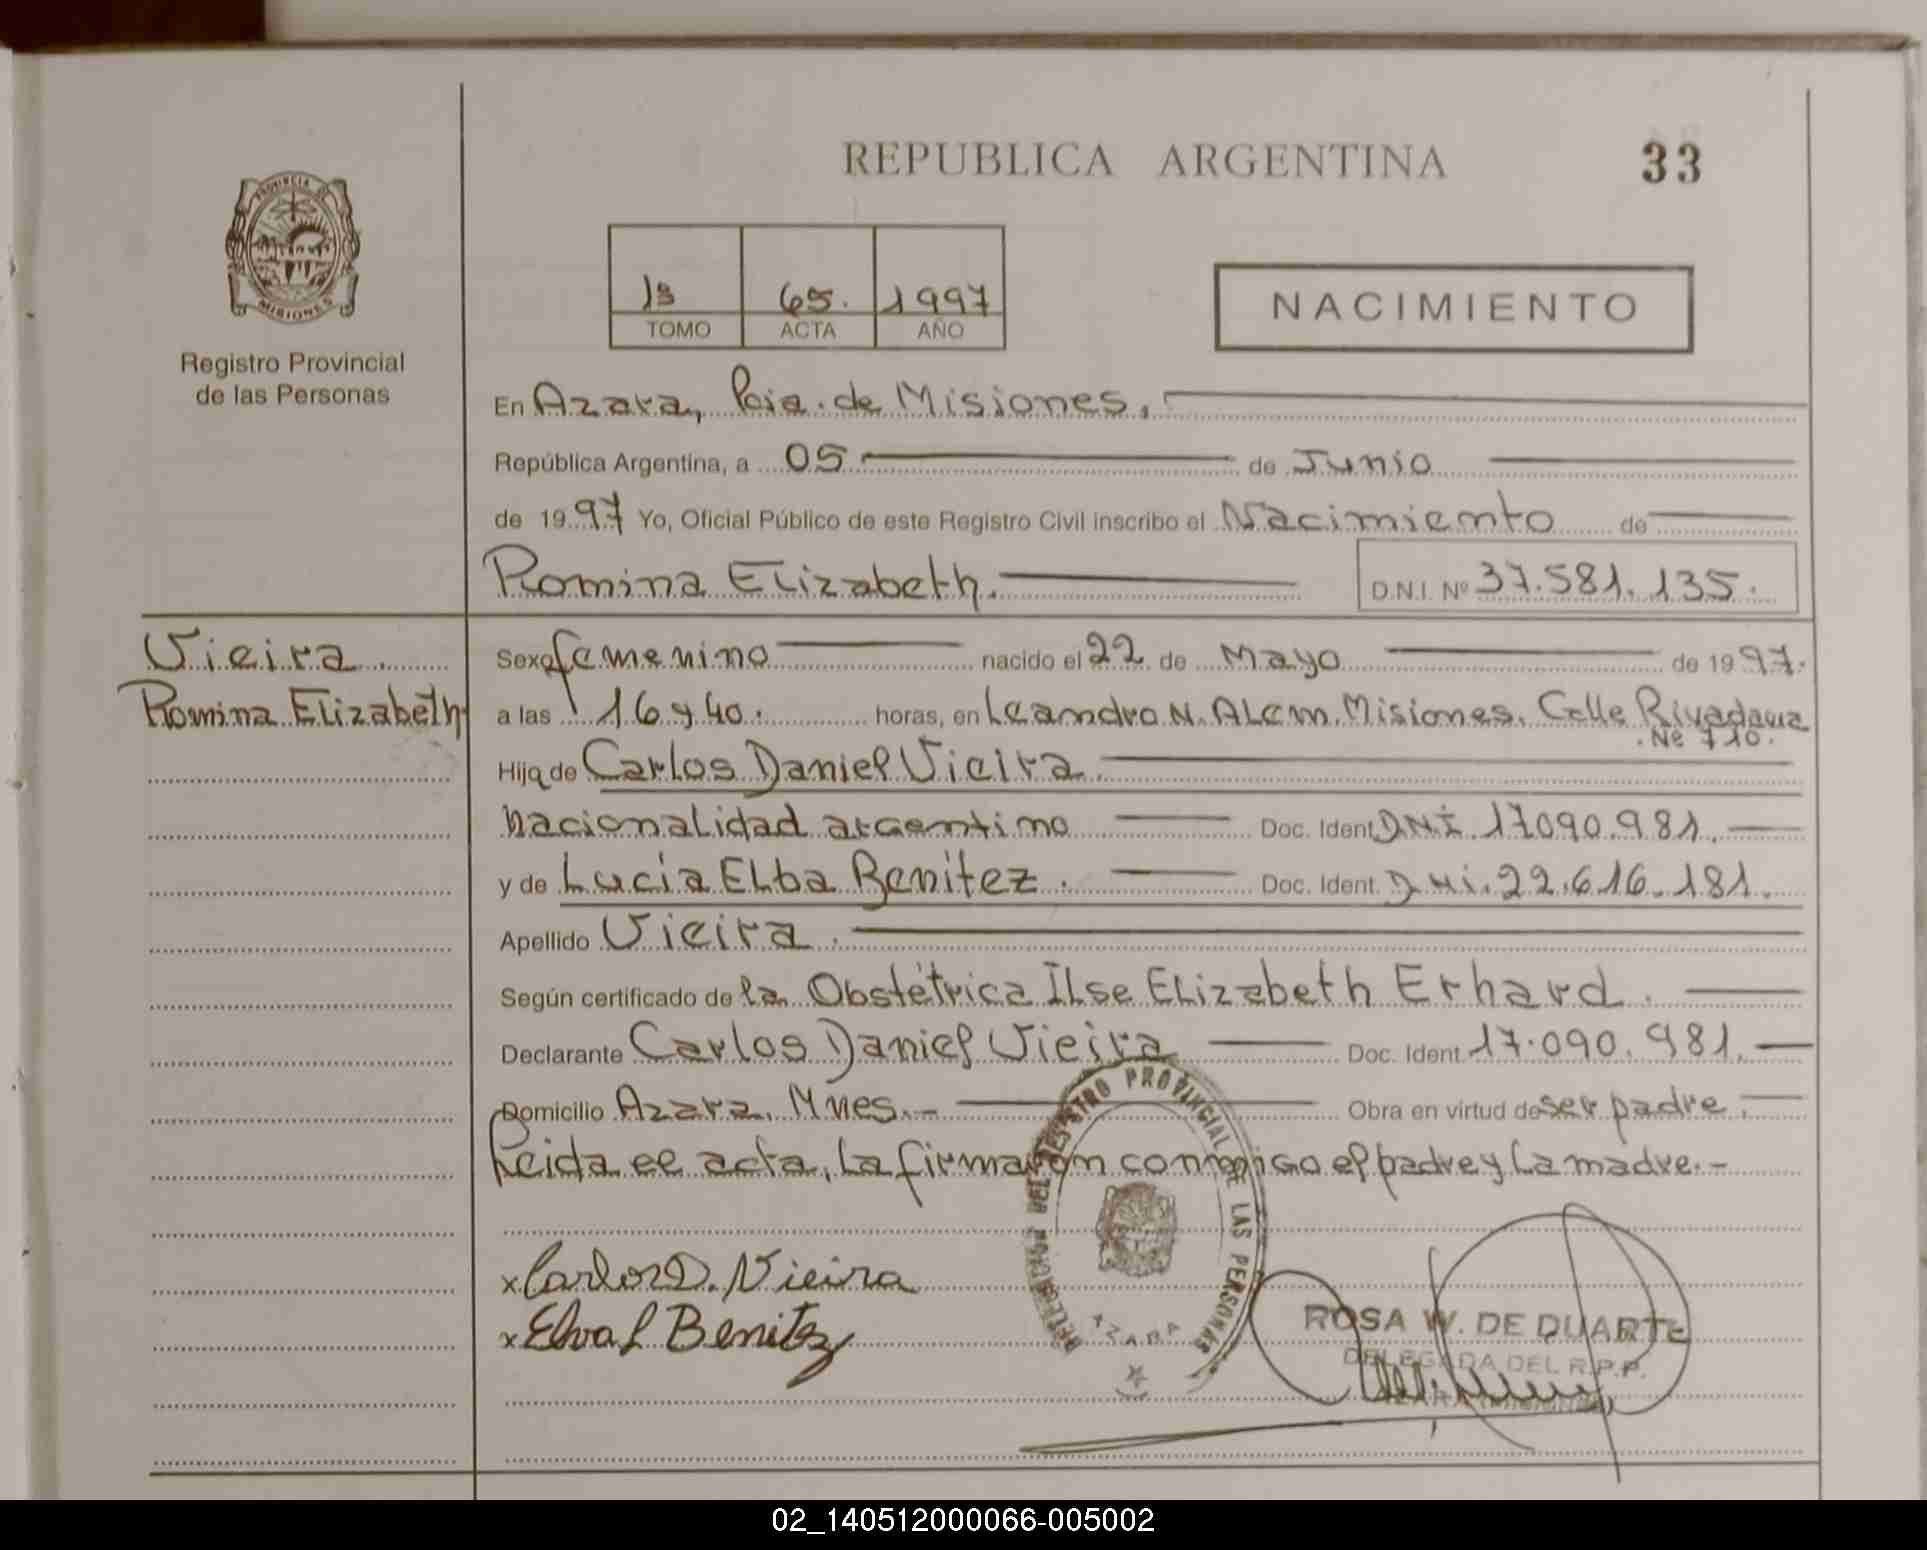 REPUBLICA ARGENTINA
33
PROVINCIA DE
MISIONES
Registro Provincial
de las Personas
1º 65. 1997
TOMO ACTA AÑO
NACIMIENTO
En Azara, Pcia. de Misiones.
República Argentina, a 05 de Junio
de 1997 Yo, Oficial Público de este Registro Civil inscribo el Nacimiento de
Romina Elizabeth. D.N.I. Nº 37.581.135.
Vieira
Romina Elizabeth
Sexo femenino nacido el 22 de Mayo de 1997.
a las 16 y 40. horas, en Leandro N. Alem. Misiones. Calle Rivadavia
Nº 710.
Hija de Carlos Daniel Vieira
nacionalidad argentino Doc. Ident DNI. 17.090.981.
y de Lucia Elba Benitez. Doc. Ident. Dni. 22.616.181.
Apellido Vieira.
Según certificado de la Obstétrica Ilse Elizabeth Erhard.
Declarante Carlos Daniel Vieira Doc. Ident 17.090.981.
Domicilio Azara. Mnes.- Obra en virtud de ser padre.
Leida el acta, la firmaron conmigo el padre y la madre.-
DELEGACION DEL REGISTRO PROVINCIAL DE LAS PERSONAS
AZARA
x Carlos D. Vieira
x Elva L Benitez
ROSA W. DE DUARTE
DELEGADA DEL R.P.P.
02_140512000066-005002